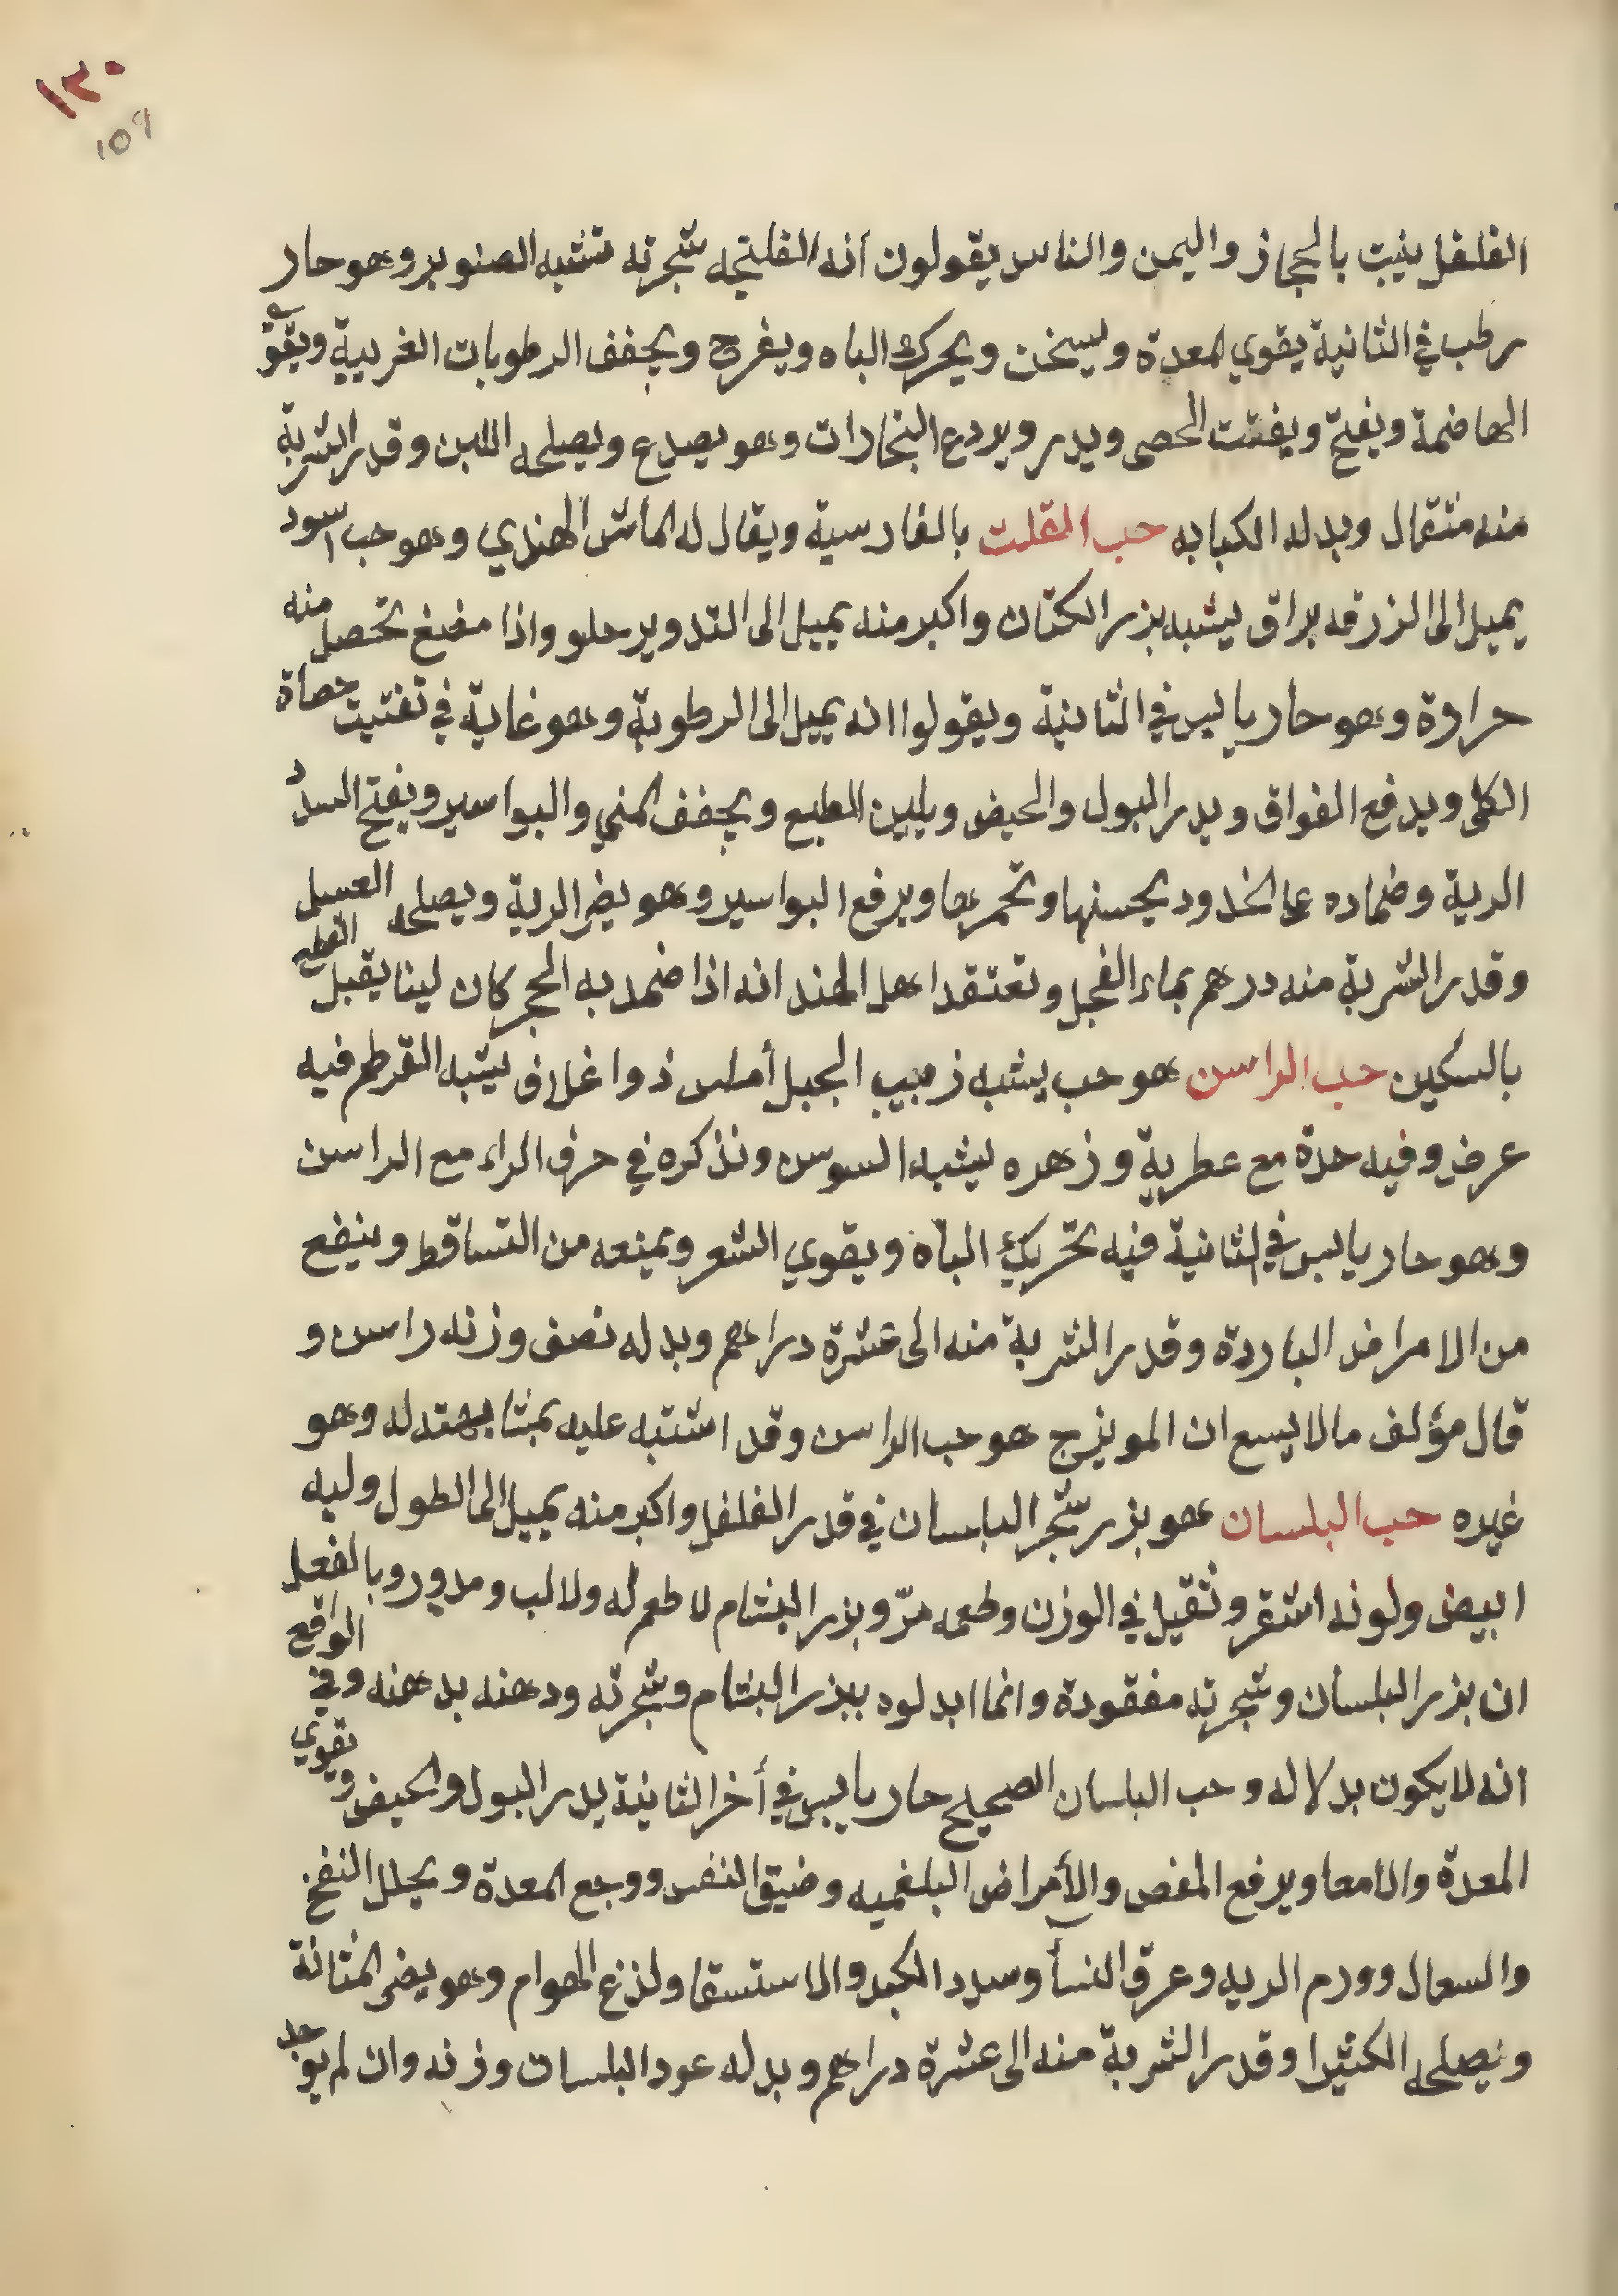 ١٣٠
١٥٩
الفلفل ينبت بالحجاز واليمن والناس يقولون أنه الفلنجه شجرته تشبه الصنوبر وهو حار
رطب في الثانية يقوي المعدة ويسخن ويحرك الباه ويفرح ويجفف الرطوبات الغريبة ويقوي
الهاضمة ويفتح ويفتت الحصى ويدر ويردع البخارات وهو يصدع ويصلحه اللبن وقدر الشربة
منه مثقال وبدله الكبابه حب القلت بالفارسية ويقال له الماش الهندي وهو حب اسود
يميل الى الزرقه براق يشبه بزر الكتان واكبر منه يميل الى التدوير حلو واذا مضغ تحصل منه
حرارة وهو حار يابس في الثانية ويقولوا انه يميل الى الرطوبة وهو غاية في تفتيت حصاة
الكلى ويدفع الفواق ويدر البول والحيض ويلين الطبع ويجفف المني والبواسير ويفتح السدد
الرية وضماده على الخدود يحسنها وتحمرها ويرفع البواسير وهو يضر الرية ويصلحه العسل
وقدر الشربة منه درهم بماء الفجل وتعتقد اهل الهند انه اذا ضمد به الحجر كان لينا يقبل القطع
بالسكين حب الراسن هو حب يشبه زبيب الجبل أملس ذوا غلاف يشبه القرطم فيه
عرض وفيه حدة مع عطرية وزهره يشبه السوسن ونذكره في حرف الراء مع الراسن
وهو حار يابس في الثانية فيه تحريك الباه ويقوي الشعر ويمنعه من التساقط وينفع
من الامراض الباردة وقدر الشربة منه الى عشرة دراهم وبدله نصف وزنه راسن و
قال مؤلف مالا يسع ان المويزج هو حب الراسن وقد اشتبه عليه بمشابهته له وهو
غيره حب البلسان هو بزر شجر البلسان في قدر الفلفل واكبر منه يميل الى الطول ولبه
ابيض ولونه اشقر وثقيل في الوزن وطعمه مرّ وبزر البشام لا طعم له ولا لب ومدور وبالفعل
ان بزر البلسان وشجرته مفقودة وانما ابدلوه ببزر البشام وشجرته ودهنه بدهنه وفي الواقع
انه لا يكون بدلا له وحب البلسان الصحيح حار يابس في أخر الثانية يدر البول والحيض ويقوي
المعدة والامعا ويرفع المغص والأمراض البلغميه وضيق النفس ووجع المعدة ويحلل النفخ
والسعال وورم الريه وعرق النسأ وسدد الكبد والاستسقا ولذع الهوام وهو يضر المثانة
ويصلحه الكثيرا وقدر الشربة منه الى عشرة دراهم وبدله عود البلسان وزنه وان لم يوجد